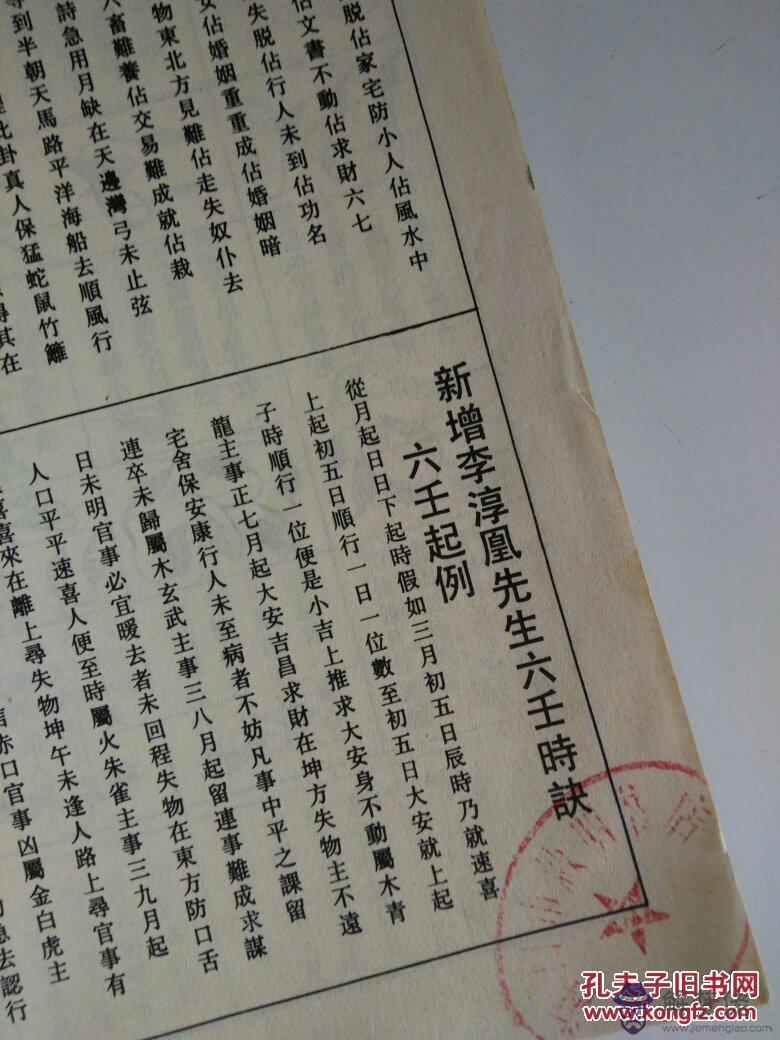 脱佔家宅防小人佔風水中
佔文書不動佔求財六七
失脱佔行人未到佔功名
女佔婚姻重重成佔婚姻暗
物東北方見難佔走失奴仆去
六畜難養佔交易難成就佔栽
詩急用月缺在天邊灣弓未止弦
到半朝天馬路平洋海船去順風行
比卦真人保猛蛇鼠竹籬
其在
新增李淳凰先生六壬時訣
六壬起例
從月起日日下起時假如三月初五日辰時乃就速喜
上起初五日順行一日一位數至初五日大安就上起
子時順行一位便是小吉上推求大安身不動屬木青
龍主事正七月起大安吉昌求財在坤方失物主不遠
宅舍保安康行人未至病者不妨凡事中平之課留
連卒未歸屬木玄武主事三八月起留連事難成求謀
日未明官事必宜暖去者未回程失物在東方防口舌
人口平平速喜人便至時屬火朱雀主事三九月起
喜喜來在離上尋失物坤午未逢人路上尋官事有
赤口官事凶屬金白虎主
急去認行
孔夫子旧书网
www.kongfz.com
解夢佬
www.jiemenglao.com